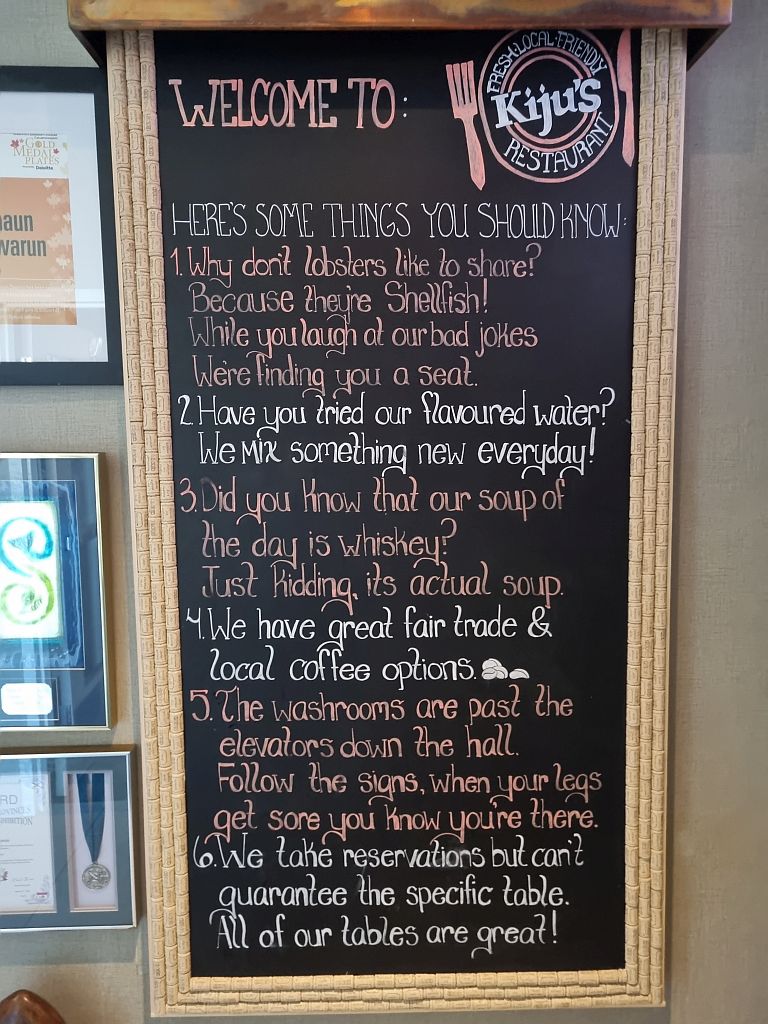 WELCOME TO:
FRESH·LOCAL·FRIENDLY
Kiju's
RESTAURANT
HERE'S SOME THINGS YOU SHOULD KNOW:
1. Why don't lobsters like to share?
Because they're Shellfish!
While you laugh at our bad jokes
We're finding you a seat.
2. Have you tried our flavoured water?
We MIX something new everyday!
3. Did you know that our soup of
the day is whiskey?
Just kidding, its actual soup.
4. We have great fair trade &
local coffee options.
5. The washrooms are past the
elevators down the hall.
Follow the signs, when your legs
get sore you know you're there.
6. We take reservations but can't
guarantee the specific table.
All of our tables are great!
GOLD
MEDAL
PLATES
Deloitte
aun
warun
RD